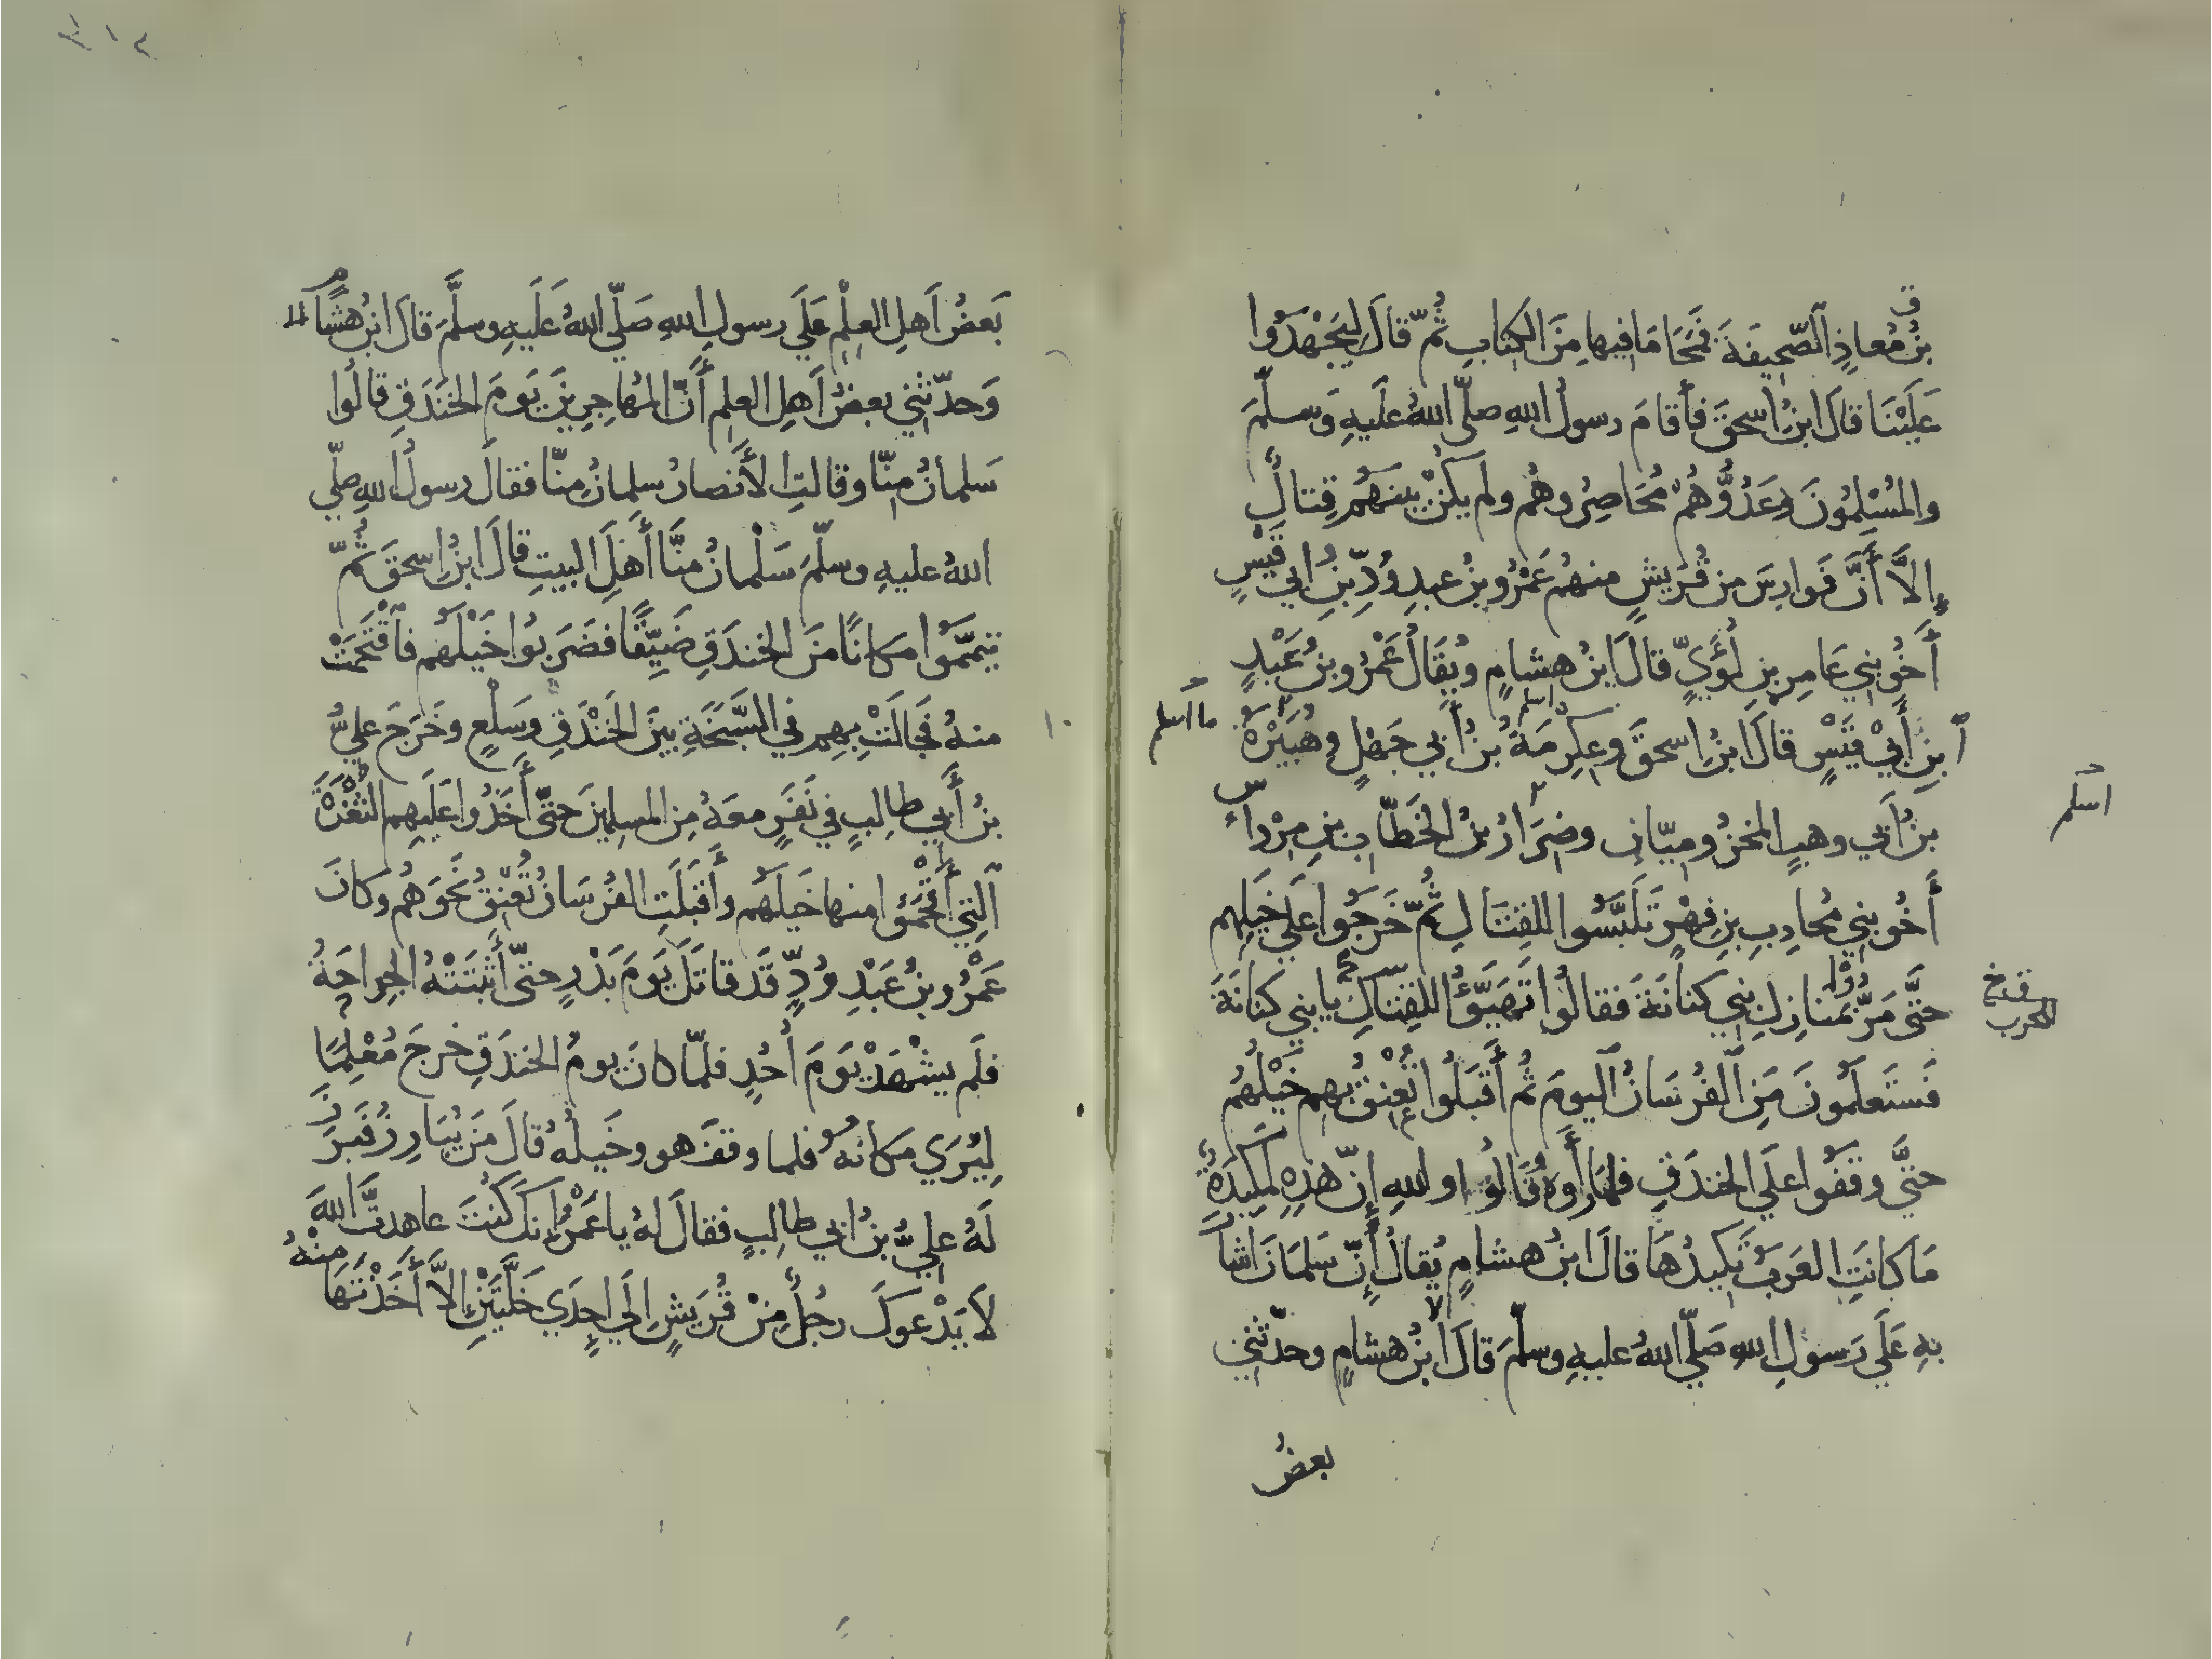 بنُ مُعاذٍ الصّحيفَةَ فمَحَا مَا فيها مِنَ الكتابِ ثُمّ قالَ لِيَجْهَدُوا
عَلَيْنَا قالَ ابنُ اسحقَ فأقامَ رسولُ اللهِ صلّى اللهُ عليهِ وَسلّمَ
والمُسْلِمُونَ وعَدُوُّهُمْ مُحَاصِرُوهُم ولم يكنْ بينَهُم قِتالٌ
إلاَّ أَنَّ فَوارِسَ من قُرَيشٍ منهُم عَمْرُو بنُ عبدِ وُدِّ بنِ ابي قَيْسٍ
أَخُو بني عَامِرِ بنِ لُؤَيٍّ قالَ ابنُ هشامٍ ويُقَالُ عَمْرُو بنُ عَبْدِ
بنِ أَبيْ قَيْسٍ قالَ ابنُ اسحقَ وعِكرِمَةُ بنُ أَبي جَهلٍ وهُبَيْرَةُ
ما اسلم
بنُ أَبي وهبٍ المخزُوميّانِ وضِرَارُ بنُ الخَطّابِ بنِ مِرْداسٍ
اسلم
أَخُو بني مُحارِبِ بنِ فِهْرٍ تَلَبَّسُوا للقِتَالِ ثُمّ خَرَجُوا علَى خَيلِهم
حتَّى مَرُّوْا بمَنازِلِ بَني كنانَةَ فقالُوا تَهَيَّؤُا للقِتالِ يا بني كنَانَةَ
للحرب
فَسَتَعلَمُونَ مَنِ الفُرسَانُ اليومَ ثُم أَقبَلُوا تُعْنِقُ بهِم خَيْلُهُم
حتّى وقَفُوا علَى الخندَقِ فلمّا رأَوهُ قَالُوا واللهِ إنّ هذِهِ لَمَكِيدَةٌ
مَا كانَتِ العَرَبُ تَكِيدُهَا قالَ ابنُ هشامٍ يُقالُ إنّ سَلمَانَ اشارَ
بهِ عَلَى رَسولِ اللهِ صَلّى اللهُ عليهِ وسلّمَ قالَ ابنُ هشامٍ وحدّثَني
بعضُ
بَعضُ اَهلِ العِلْمِ عَلَي رسولِ اللهِ صَلّي اللهُ عَلَيهِ وسلَّمَ قالَ ابنُ هشَامٍ
وَحدّثَني بعضُ اَهلِ العلمِ أَنّ المُهاجِرِينَ يَومَ الخَندَقِ قالُوا
سَلمانُ مِنّا وقالتِ الأَنصارُ سلمانُ مِنّا فقالَ رسولُ اللهِ صلّي
اللهُ عليهِ وسلّمَ سَلْمانُ منَّا أَهلَ البيتِ قالَ ابنُ اسحقَ ثُمّ
تيَمَّمُوا مكانًا منَ الخندَقِ ضَيِّقًا فضَرَبُوا خَيْلَهُم فاقْتَحَمَتْ
منهُ فجَالَتْ بِهِم في السَّبَخَةِ بينَ الخَنْدَقِ وسَلْعٍ وخَرَجَ عليُّ
بنُ أَبي طالِبٍ في نَفَرٍ معَهُ مِن المسلِمينَ حتّى أَخَذُوا عَلَيهِم الثُّغْرَةَ
الّتِي أَقْحَمُوا منها خَيلَهُم وأَقبَلَتِ الفُرسَانُ تُعْنِقُ نَحوَهُم وكانَ
عَمْرُو بنُ عَبْدِ وُدٍّ قَد قاتَلَ يَومَ بَدْرٍ حتّى أَثْبَتَتْهُ الجِراحَةُ
فلَم يشْهَدْ يَومَ أُحُدٍ فلمّا كانَ يومُ الخندَقِ خرجَ مُعْلِمًا
لِيُرَي مكانُهُ فلما وقفَ هو وخَيلُهُ قالَ مَن يُبَارِزُ فَبَرَزَ
لَهُ عليُّ بنُ ابي طالبٍ فقالَ لهُ يا عَمْرُو إنكَ كُنتَ عاهدتَّ اللهَ
لاَ يَدْعوكَ رجُلٌ مِنْ قُرَيشٍ اِلَي اِحدَي خَلَّتَيْنِ إلاَّ أَخَذْتَهَا مِنْهُ